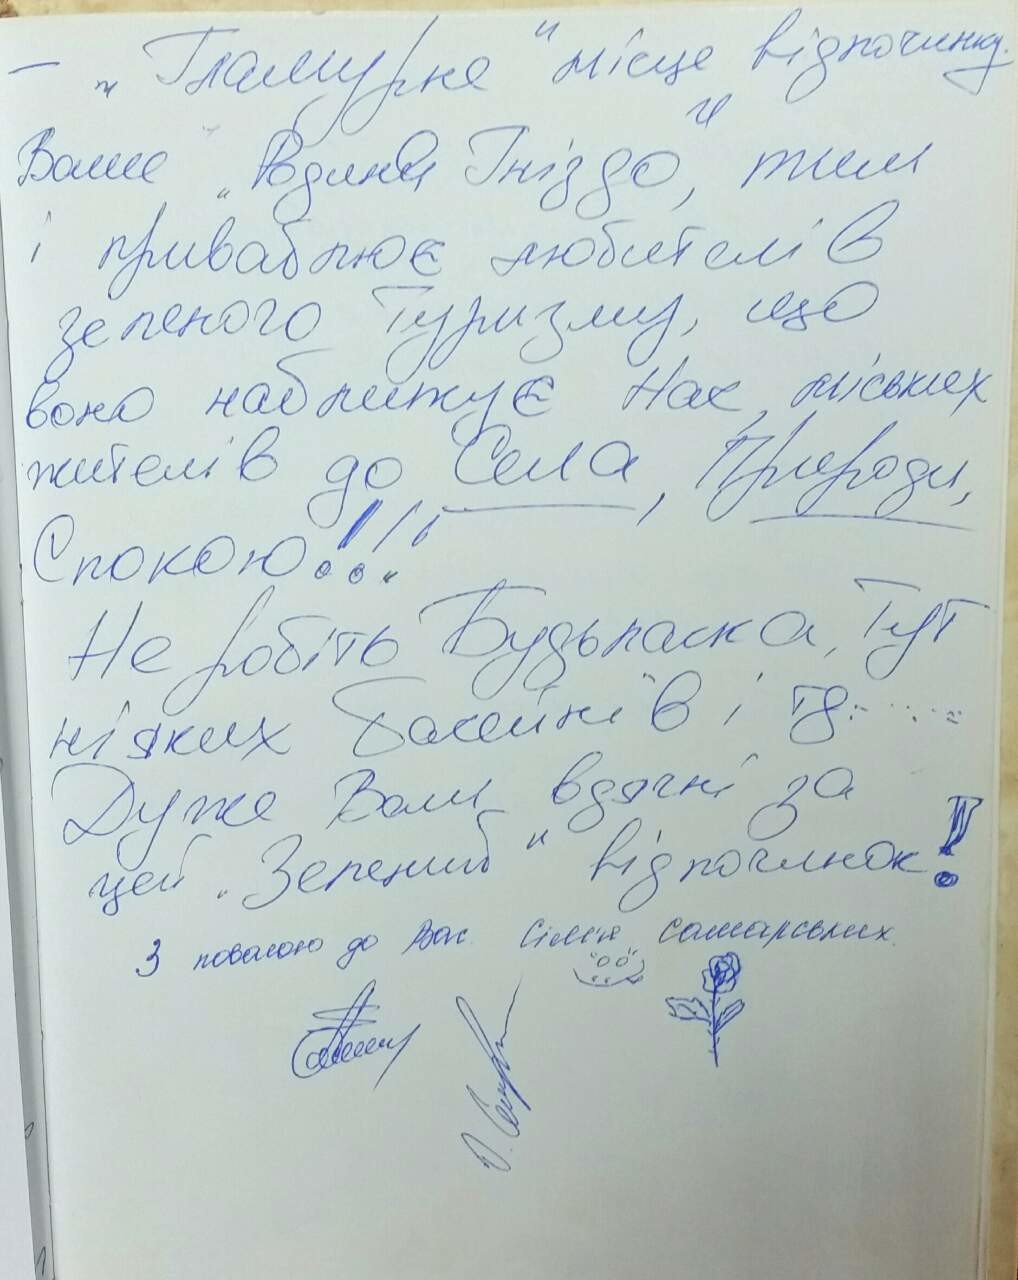 – „Гламурне" місце відпочинку.
Ваше „Родинне Гніздо", тим
і приваблює любителів
зеленого Туризму, що
воно наближує Нас, міських
жителів до Села, Природи,
Спокою!!!
Не робіть Будьласка, Тут
ніяких басейнів і тд.......
Дуже Вам вдячні за
цей „Зелений" відпочинок!
З повагою до Вас. Сім'я Самарських.